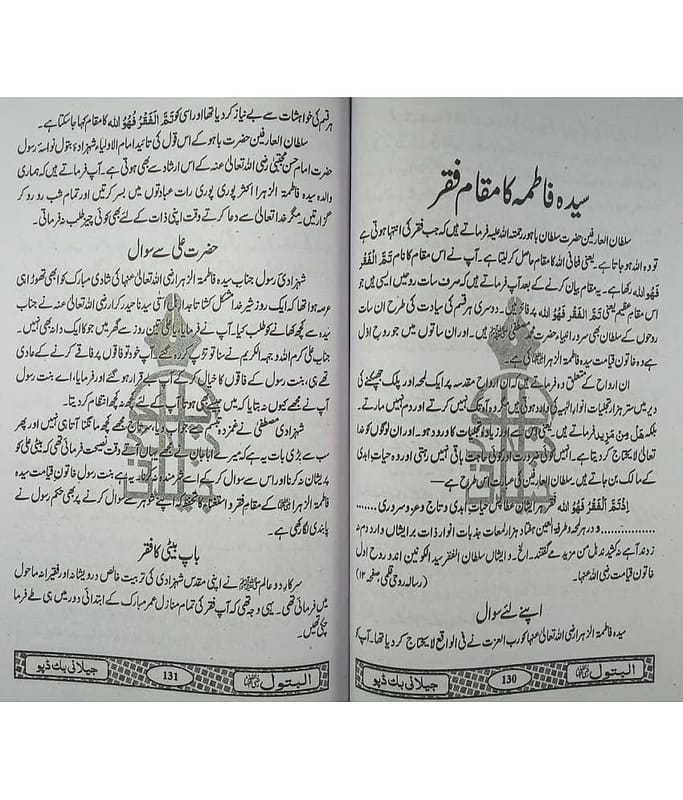 سیدہ فاطمہ کا مقام فقر
سلطان العارفین حضرت سلطان باہو رحمتہ اللہ علیہ فرماتے ہیں کہ جب فقر کی انتہا ہوتی ہے
تو وہ اللہ ہو جاتا ہے۔ یعنی فنا فی اللہ کا مقام حاصل کر لیتا ہے۔ آپ نے اس مقام کا نام تَمَّ الْفَقْرُ
فَهُوَ الله رکھا ہے۔ یہ مقام بیان کرنے کے بعد آپ فرماتے ہیں کہ صرف سات روحیں ایسی ہیں جو
اس مقام عظیم یعنی تَمَّ الْفَقْرُ فَهُوَ الله پر فائز ہیں۔ دوسری ہر قسم کی سیادت کی طرح ان سات
روحوں کے سلطان بھی سردار انبیاء حضرت محمد مصطفیٰ ﷺ ہیں۔ اور ان ساتوں میں جو روح اول
ہے وہ خاتون قیامت سیدہ فاطمۃ الزہرا کی ہے۔
ان ارواح کے متعلق وہ فرماتے ہیں کہ ان ارواح مقدسہ پر ایک لمحہ اور پلک جھپکنے کی
دیر میں ستر ہزار تجلیات انوار الٰہیہ کی وارد ہوتی ہیں مگر وہ آہ تک نہیں کرتے اور دم نہیں مارتے۔
بلکہ هَل مِن مَّزِيد فرماتے ہیں۔ یعنی ان سے اور زیادہ تجلیات کا ورود ہو۔ اور ان لوگوں کو خدا
تعالیٰ لایحتاج کر دیتا ہے۔ انہیں کوئی ضرورت اور کوئی حاجت باقی نہیں رہتی اور وہ حیات ابدی
کے مالک بن جاتے ہیں۔ سلطان العارفین کی عبارت اس طرح ہے۔
اِذَا تَمَّ الْفَقْرُ فَهُوَ الله فقر ایشاں عطا پس حیات ابدی و تاج و عز و سروری ........
........ و در ہر لمحہ و طرفۃ العین ہفتاد ہزار لمعات جذبات انوار ذات بر ایشاں وارد دم نہ
زوند آہے نہ کشیدند بل من مزید مے گفتند۔ الخ۔ و ایشاں سلطان الفقر سید الکونین اند و روح اول
خاتون قیامت رضی اللہ عنہا۔ (رسالہ روحی قلمی صفحہ ۱۲)
اپنے لئے سوال
سیدہ فاطمۃ الزہرا رضی اللہ تعالیٰ عنہا کو رب العزت نے فی الواقع لایحتاج کر دیا تھا۔ آپ کو
البتول جیلانی بک ڈپو 130
ہر قسم کی خواہشات سے بے نیاز کر دیا تھا اور اسی کو تَمَّ الْفَقْرُ فَهُوَ الله کا مقام کہا جا سکتا ہے۔
سلطان العارفین حضرت باہو کے اس قول کی تائید امام الاولیاء شہزادۂ بتول نواسۂ رسول
حضرت امام حسن مجتبیٰ رضی اللہ تعالیٰ عنہ کے اس ارشاد سے بھی ہوتی ہے۔ آپ فرماتے ہیں کہ ہماری
والدہ سیدہ فاطمۃ الزہرا اکثر پوری پوری رات عبادتوں میں بسر کرتیں اور تمام شب رو رو کر
گزارتیں۔ مگر خدا تعالیٰ سے دعا کرتے وقت اپنی ذات کے لئے بھی کوئی چیز طلب نہ فرماتی۔
حضرت علی سے سوال
شہزادیٔ رسول جناب سیدہ فاطمۃ الزہرا رضی اللہ تعالیٰ عنہا کی شادی مبارک کو ابھی تھوڑا ہی
عرصہ ہوا تھا کہ ایک روز شیر خدا مشکل کشا تاجدار سیدنا حیدر کرار رضی اللہ تعالیٰ عنہ نے جناب
سیدہ سے کچھ کھانے کو طلب کیا۔ آپ نے فرمایا، یا علی تین روز سے گھر میں جو کا ایک دانہ بھی نہیں۔
جناب علی کرم اللہ وجہہ الکریم نے سنا تو تڑپ کر رہ گئے۔ آپ خود تو فاقوں پر فاقے کرنے کے عادی
تھے ہی، بنت رسول کے فاقوں کا خیال کر کے آپ بے قرار ہو گئے اور فرمایا، اے بنت رسول
آپ نے مجھے کیوں نہ بتایا کہ میں پہلے ہی آپ کے لئے کچھ نہ کچھ انتظام کر دیتا۔
شہزادی مصطفیٰ نے جواب دیا، سرتاج مجھے کچھ مانگنا آتا ہی نہیں اور پھر
سب سے بڑی بات یہ ہے کہ میرے ابا جان نے مجھے یہاں آتے وقت نصیحت فرمائی تھی کہ بیٹی علی کو
پریشان نہ کرنا اور اس سے سوال کر کے اسے شرمندہ نہ کرنا۔ یہ ہے بنت رسول خاتون قیامت سیدہ
فاطمۃ الزہرا کے مقام فقر و استغنا کا کہ اپنے شوہر سے سوال کرنے پر بھی حکم رسول نے
پابندی لگا رکھی ہے۔
باپ بیٹی کا فقر
سرکار دو عالم ﷺ نے اپنی مقدس شہزادی کی تربیت خالص درویشانہ اور فقیرانہ ماحول
میں فرمائی تھی۔ یہی وجہ تھی کہ آپ فقر کی تمام منازل عمر مبارک کے ابتدائی دور میں ہی طے فرما
چکی تھیں۔
البتول جیلانی بک ڈپو 131